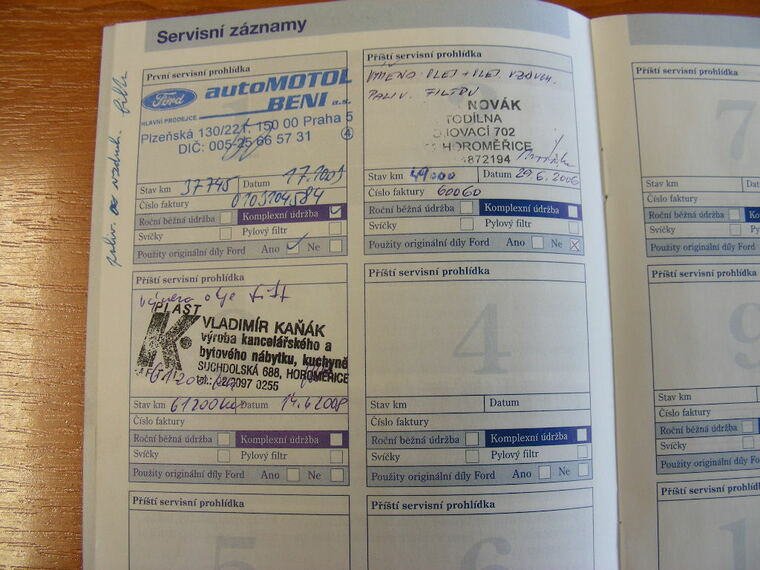 Servisní záznamy
První servisní prohlídka
Ford autoMOTOL
BENI a.s.
HLAVNÍ PRODEJCE
Plzeňská 130/221, 150 00 Praha 5
DIČ: 005-25 66 57 31 4
Stav km 37745 Datum
Číslo faktury 0103104584
Roční běžná údržba Komplexní údržba
Svíčky Pylový filtr
Použity originální díly Ford Ano Ne
Příští servisní prohlídka
VÝMĚNA OLEJ + OLEJ. VZDUCH.
PALIV. FILTRU
NOVÁK
TODÍLNA
JOVACÍ 702
HOROMĚŘICE
872194
Stav km 49000 Datum 29.6.2006
Číslo faktury 60060
Roční běžná údržba Komplexní údržba
Svíčky Pylový filtr
Použity originální díly Ford Ano Ne
Příští servisní prohlídka
výměna oleje
PLAST
K
VLADIMÍR KAŇÁK
výroba kancelářského a
bytového nábytku, kuchyně
SUCHDOLSKÁ 688, HOROMĚŘICE
Stav km 61200 km Datum 14.6.2008
Číslo faktury
Roční běžná údržba Komplexní údržba
Svíčky Pylový filtr
Použity originální díly Ford Ano Ne
Příští servisní prohlídka
4
Stav km Datum
Číslo faktury
Roční běžná údržba Komplexní údržba
Svíčky Pylový filtr
Použity originální díly Ford Ano Ne
Příští servisní prohlídka
5
Příští servisní prohlídka
6
Příští servisní prohlídka
7
Stav km
Číslo faktury
Roční běžná údržba
Svíčky
Použity originální díly
Příští servisní prohlídka
Stav km
Číslo faktury
Roční běžná údržba
Svíčky
Použity originální díly
Příští servisní prohlídka